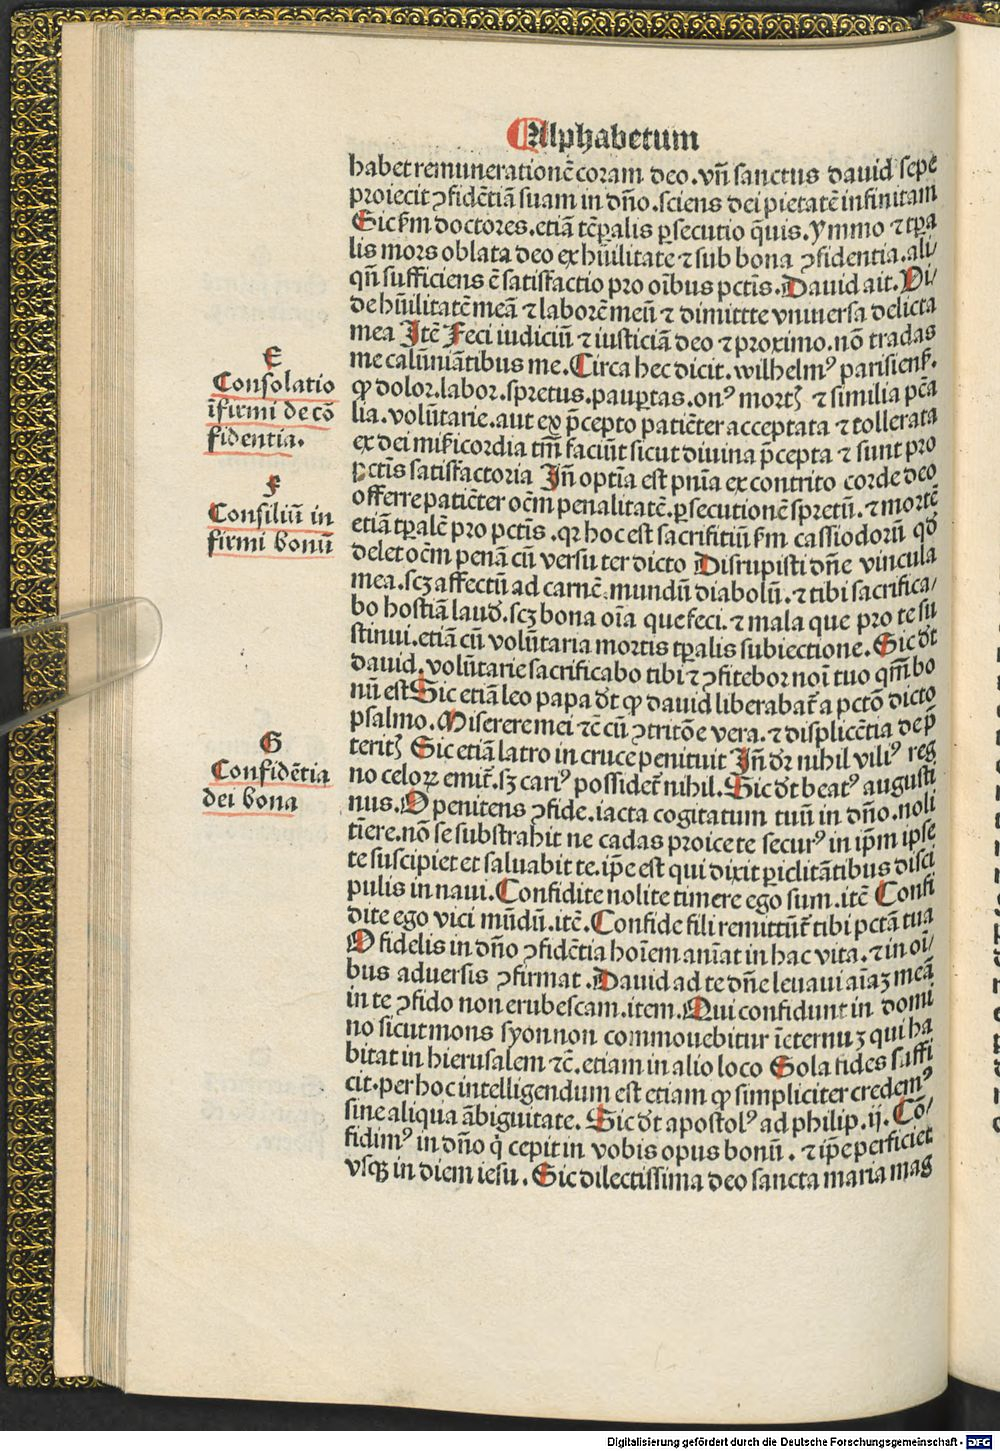 Alphabetum
habet remunerationē coram deo. vñ sanctus dauid sepe
proiecit ꝯfidētiā suam in dño. sciens dei pietatē infinitam
Sic ẜm doctores. etiā tēꝑalis ꝑsecutio q̄uis. ymmo ⁊ tꝑa
lis mors oblata deo ex hūilitate ⁊ sub bona ꝯfidentia. ali/
qñ sufficiens ē satisfactio pro oībus pctīs. Dauid ait. Vi/
de hūilitatē meā ⁊ laborē meū ⁊ dimittte vniuersa delicta
mea Itē Feci iudiciū ⁊ iusticiā deo ⁊ proximo. nō tradas
me calūniātibus me. Circa hec dicit. wilhelmꝰ parisienẜ.
ꝙ dolor. labor. spretus. pauꝑtas. onꝰ mortꝭ ⁊ similia pēa
lia. volūtarie. aut ex p̄cepto patiēter acceptata ⁊ tollerata
ex dei mīẜicordia tm̄ faciūt sicut diuina p̄cepta ⁊ sunt pro
pctīs satisfactoria Iñ optīa est pnīa ex contrito corde deo
offerre patiēter oēm penalitatē. ꝑsecutionē spretū. ⁊ mortē
etiā tꝑalē pro pctīs. qꝛ hoc est sacrifitiū ẜm cassiodorū qd̄
delet oēm penā cū versu ter dicto Disrupisti dñe vincula
mea. scꝫ affectū ad carnē. mundū diabolū. ⁊ tibi sacrifica/
bo hostiā laud̄. scꝫ bona oīa que feci. ⁊ mala que pro te su
stinui. etiā cū volūtaria mortis tꝑalis subiectione. Sic dt̄
dauid. volūtarie sacrificabo tibi ⁊ ꝯfitebor noī tuo qm̄ bo
nū est Sic etiā leo papa dt̄ ꝙ dauid liberabat̄ a pctō dicto
psalmo. Miserere mei ⁊c̄ cū ꝯtritōe vera. ⁊ displicētia de p̄
teritꝭ Sic etiā latro in cruce penituit Iñ dꝛ nihil viliꝰ reg
no celoꝝ emit̄. sꝫ cariꝰ possidet̄ nihil. Sic dt̄ beatꝰ augusti
nus. O penitens ꝯfide. iacta cogitatum tuū in dño. noli
tīere. nō se substrahit ne cadas proice te securꝰ in ip̄m ipse
te suscipiet et saluabit te. ip̄e est qui dixit ꝑiclitātibus disci
pulis in naui. Confidite nolite timere ego sum. itē Confi
dite ego vici mūdū. itē. Confide fili remittūt̄ tibi pctā tua
O fidelis in dño ꝯfidētia hoīem anīat in hac vita. ⁊ in oī/
bus aduersis ꝯfirmat. Dauid ad te dñe leuaui aīaꝫ meā
in te ꝯfido non erubescam. item. Qui confidunt in domi
no sicut mons syon non commouebitur ī eternuꝫ qui ha
bitat in hierusalem ⁊c̄. etiam in alio loco Sola fides suffi
cit. per hoc intelligendum est etiam ꝙ simpliciter credemꝰ
sine aliqua ābiguitate. Sic dt̄ apostolꝰ ad philip. ij. Cō/
fidimꝰ in dño q̇ cepit in vobis opus bonū. ⁊ ip̄e perficiet
vsqꝫ in diem iesu. Sic dilectissima deo sancta maria mag
E
Consolatio
īfirmi de cō
fidentia.
F
Consiliū in
firmi bonū
G
Confidētia
dei bona
Digitalisierung gefördert durch die Deutsche Forschungsgemeinschaft - DFG